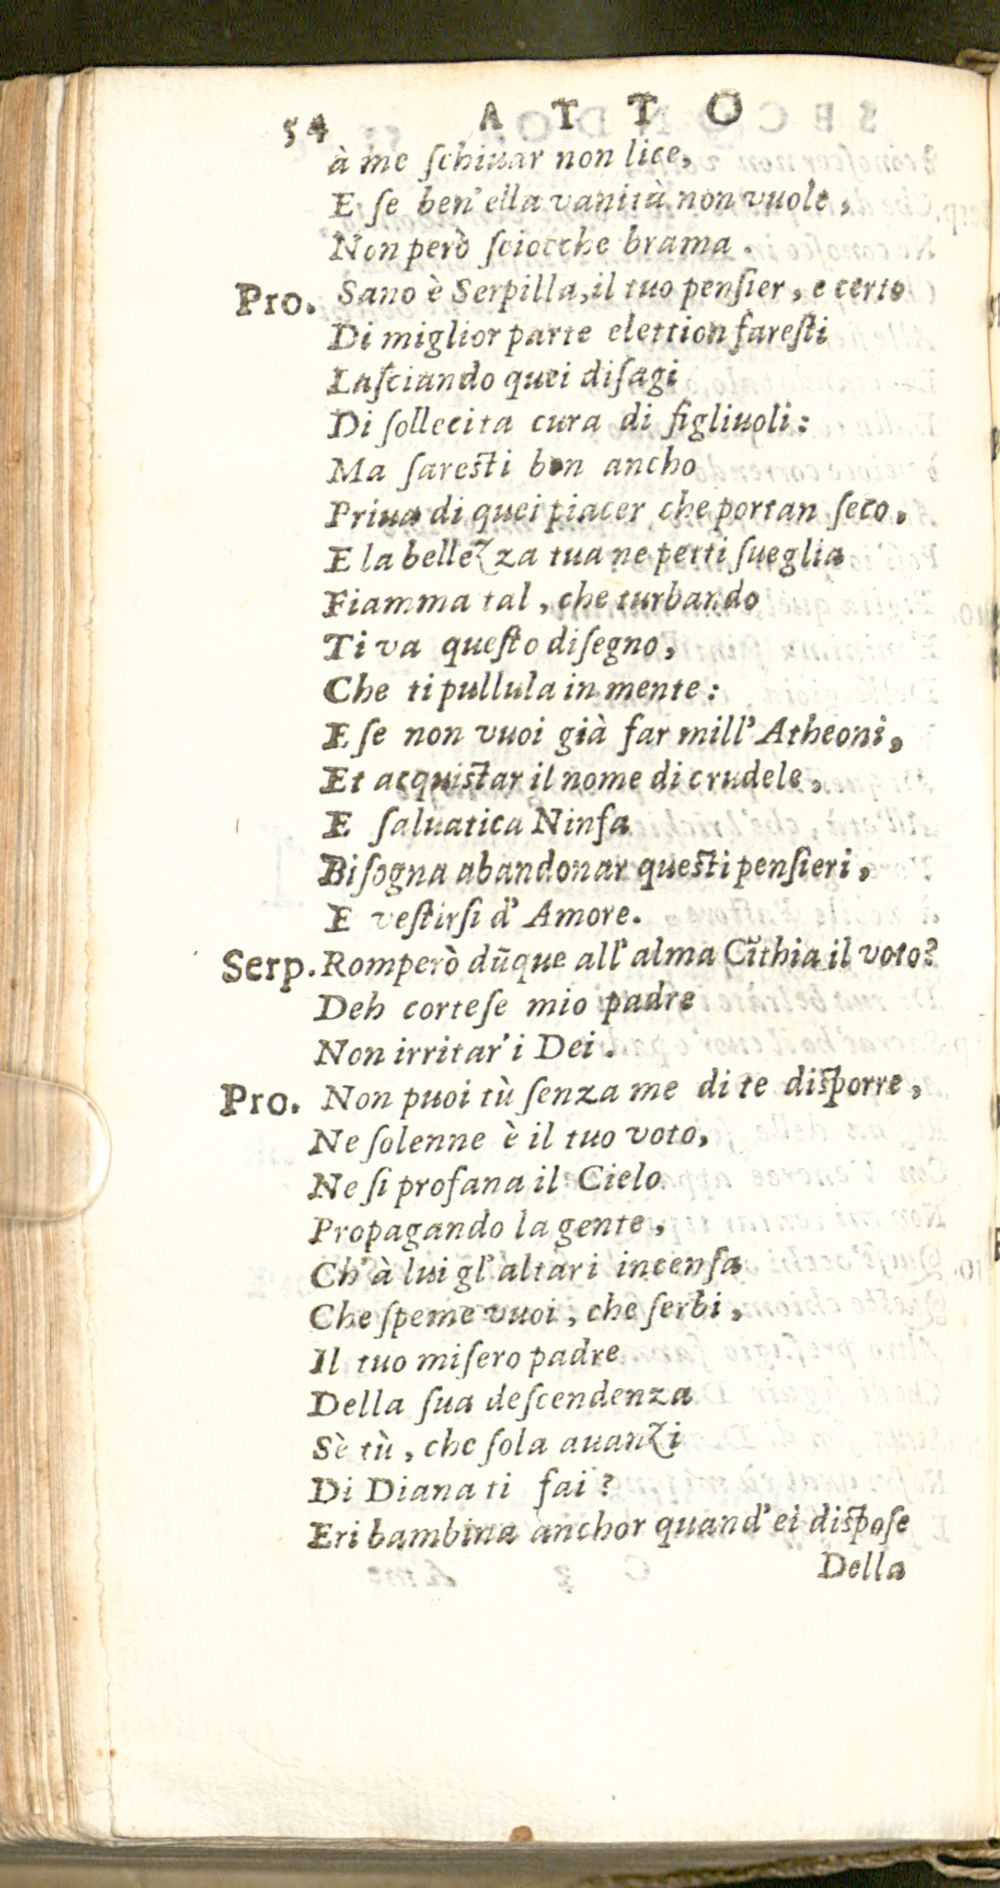 54 ATTO
à me ſchiuar non lice,
E ſe ben' ella vanità non vuole,
Non però ſciocche brama.
Pro. Sano è Serpilla, il tuo penſier, e certo
Di miglior parte elettion fareſti
Laſciando quei diſagi
Di ſollecita cura di figliuoli:
Ma ſareſti ben ancho
Priua di quei piacer che portan ſeco,
E la bellezza tua ne petti ſueglia
Fiamma tal, che turbando
Ti va queſto diſegno,
Che ti pullula in mente:
E ſe non vuoi già far mill' Atheoni,
Et acquiſtar il nome di crudele,
E ſaluatica Ninfa
Biſogna abandonar queſti penſieri,
E veſtirſi d' Amore.
Serp. Romperò dũque all' alma Cĩthia il voto?
Deh corteſe mio padre
Non irritar' i Dei.
Pro. Non puoi tù ſenza me di te diſporre,
Ne ſolenne è il tuo voto,
Ne ſi profana il Cielo
Propagando la gente,
Ch' à lui gl' altari incenſa
Che ſpeme vuoi, che ſerbi,
Il tuo miſero padre
Della ſua deſcendenza
Sè tù, che ſola auanzi
Di Diana ti fai?
Eri bambina anchor quand' ei diſpoſe
Della